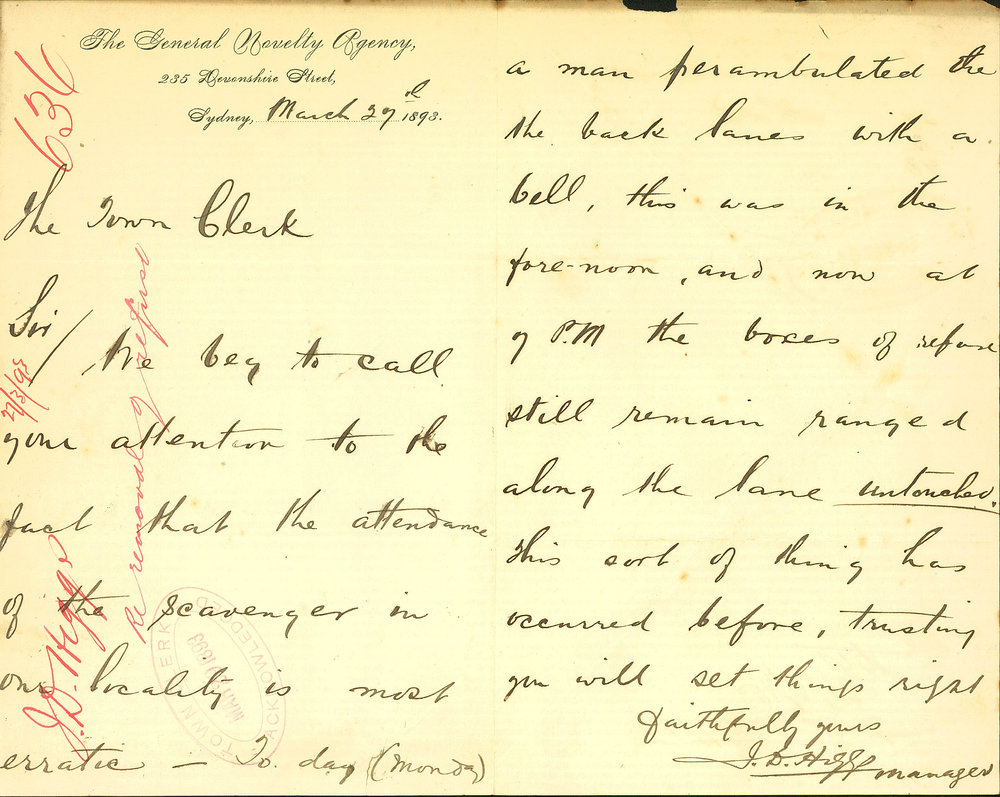 The General Novelty Agency,
235 Devonshire Street,
Sydney, March 27th 1893.
636
The Town Clerk
Sir/ We beg to call
your attention to the
fact that the attendance
of the scavenger in
our locality is most
erratic – To day (Monday)
a man perambulated the
the back lanes with a
bell, this was in the
fore-noon, and now at
9 P.M the boxes of refuse
still remain ranged
along the lane untouched.
This sort of thing has
occurred before, trusting
you will set things right
Faithfully yours
J. D. Higgs manager
J. D. Higgs
27/3/93
Re removal of refuse
TOWN CLERK
ACKNOWLEDGED